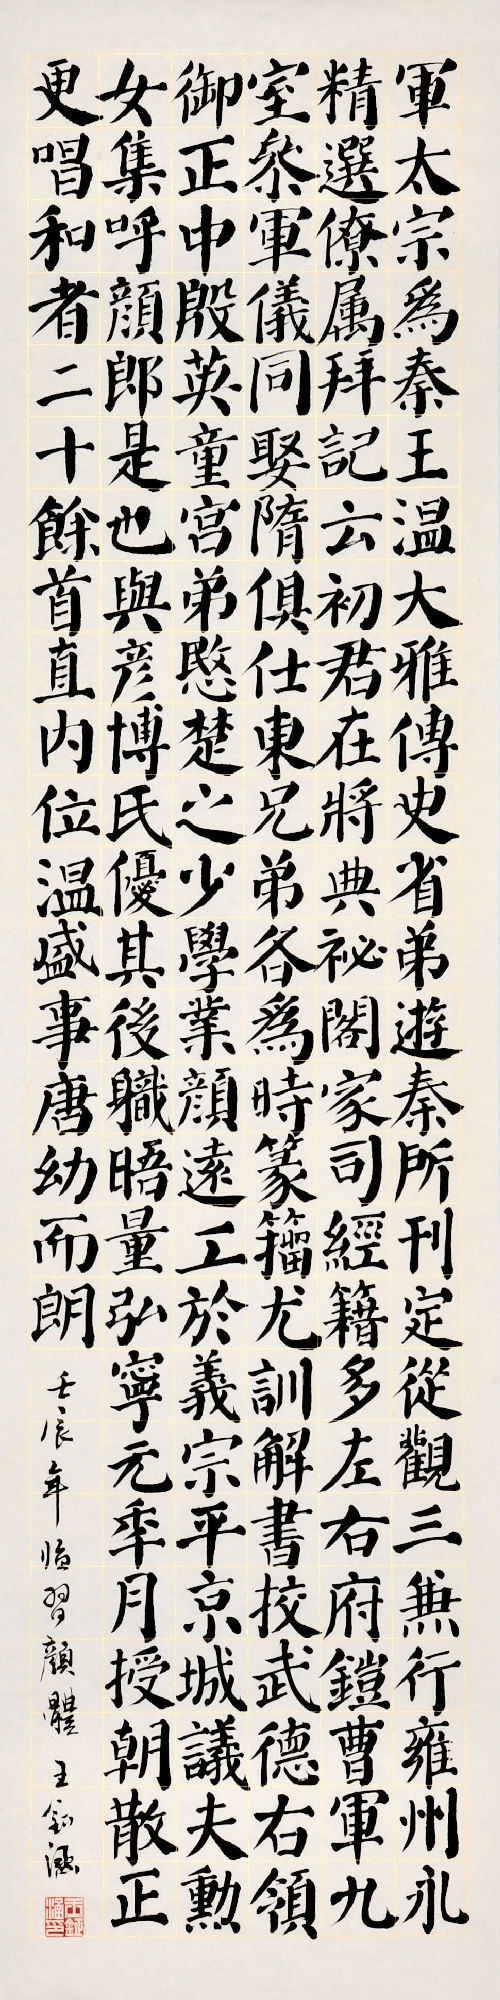 軍太宗爲秦王温大雅傳史省弟遊秦所刊定從觀三兼行雍州永
精選僚属拜記云初君在將典祕閣家司經籍多左右府鎧曹軍九
室叅軍儀同娶隋俱仕東兄弟各爲時篆籀尤訓解書挍武德右領
御正中殷英童宮弟愍楚之少學業顏遠工於義宗平京城議夫勳
女集呼顏郎是也與彦博氏優其後職晤量弘寧元秊月授朝散正
更唱和者二十餘首直内位温盛事唐幼而朗
壬辰年臨習顏體 王